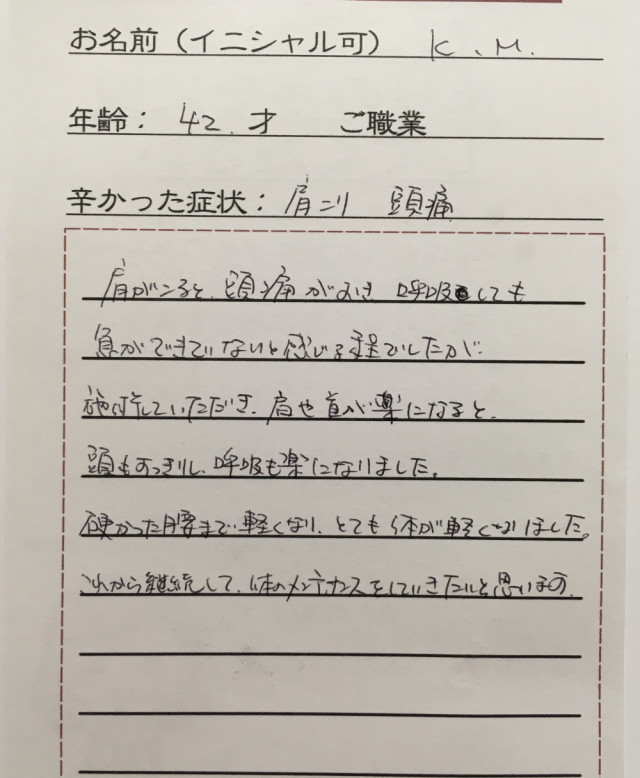 お名前（イニシャル可） K.M.
年齢： 42.才 ご職業
辛かった症状： 肩コリ 頭痛
肩がこると、頭痛がおき 呼吸しても
息ができていないと感じる程でしたが
施術していただき、肩や首が楽になると、
頭もすっきりし、呼吸も楽になりました。
硬かった腰まで軽くなり、とても体が軽くなりました。
これから継続して、体のメンテナンスをしていきたいと思います。